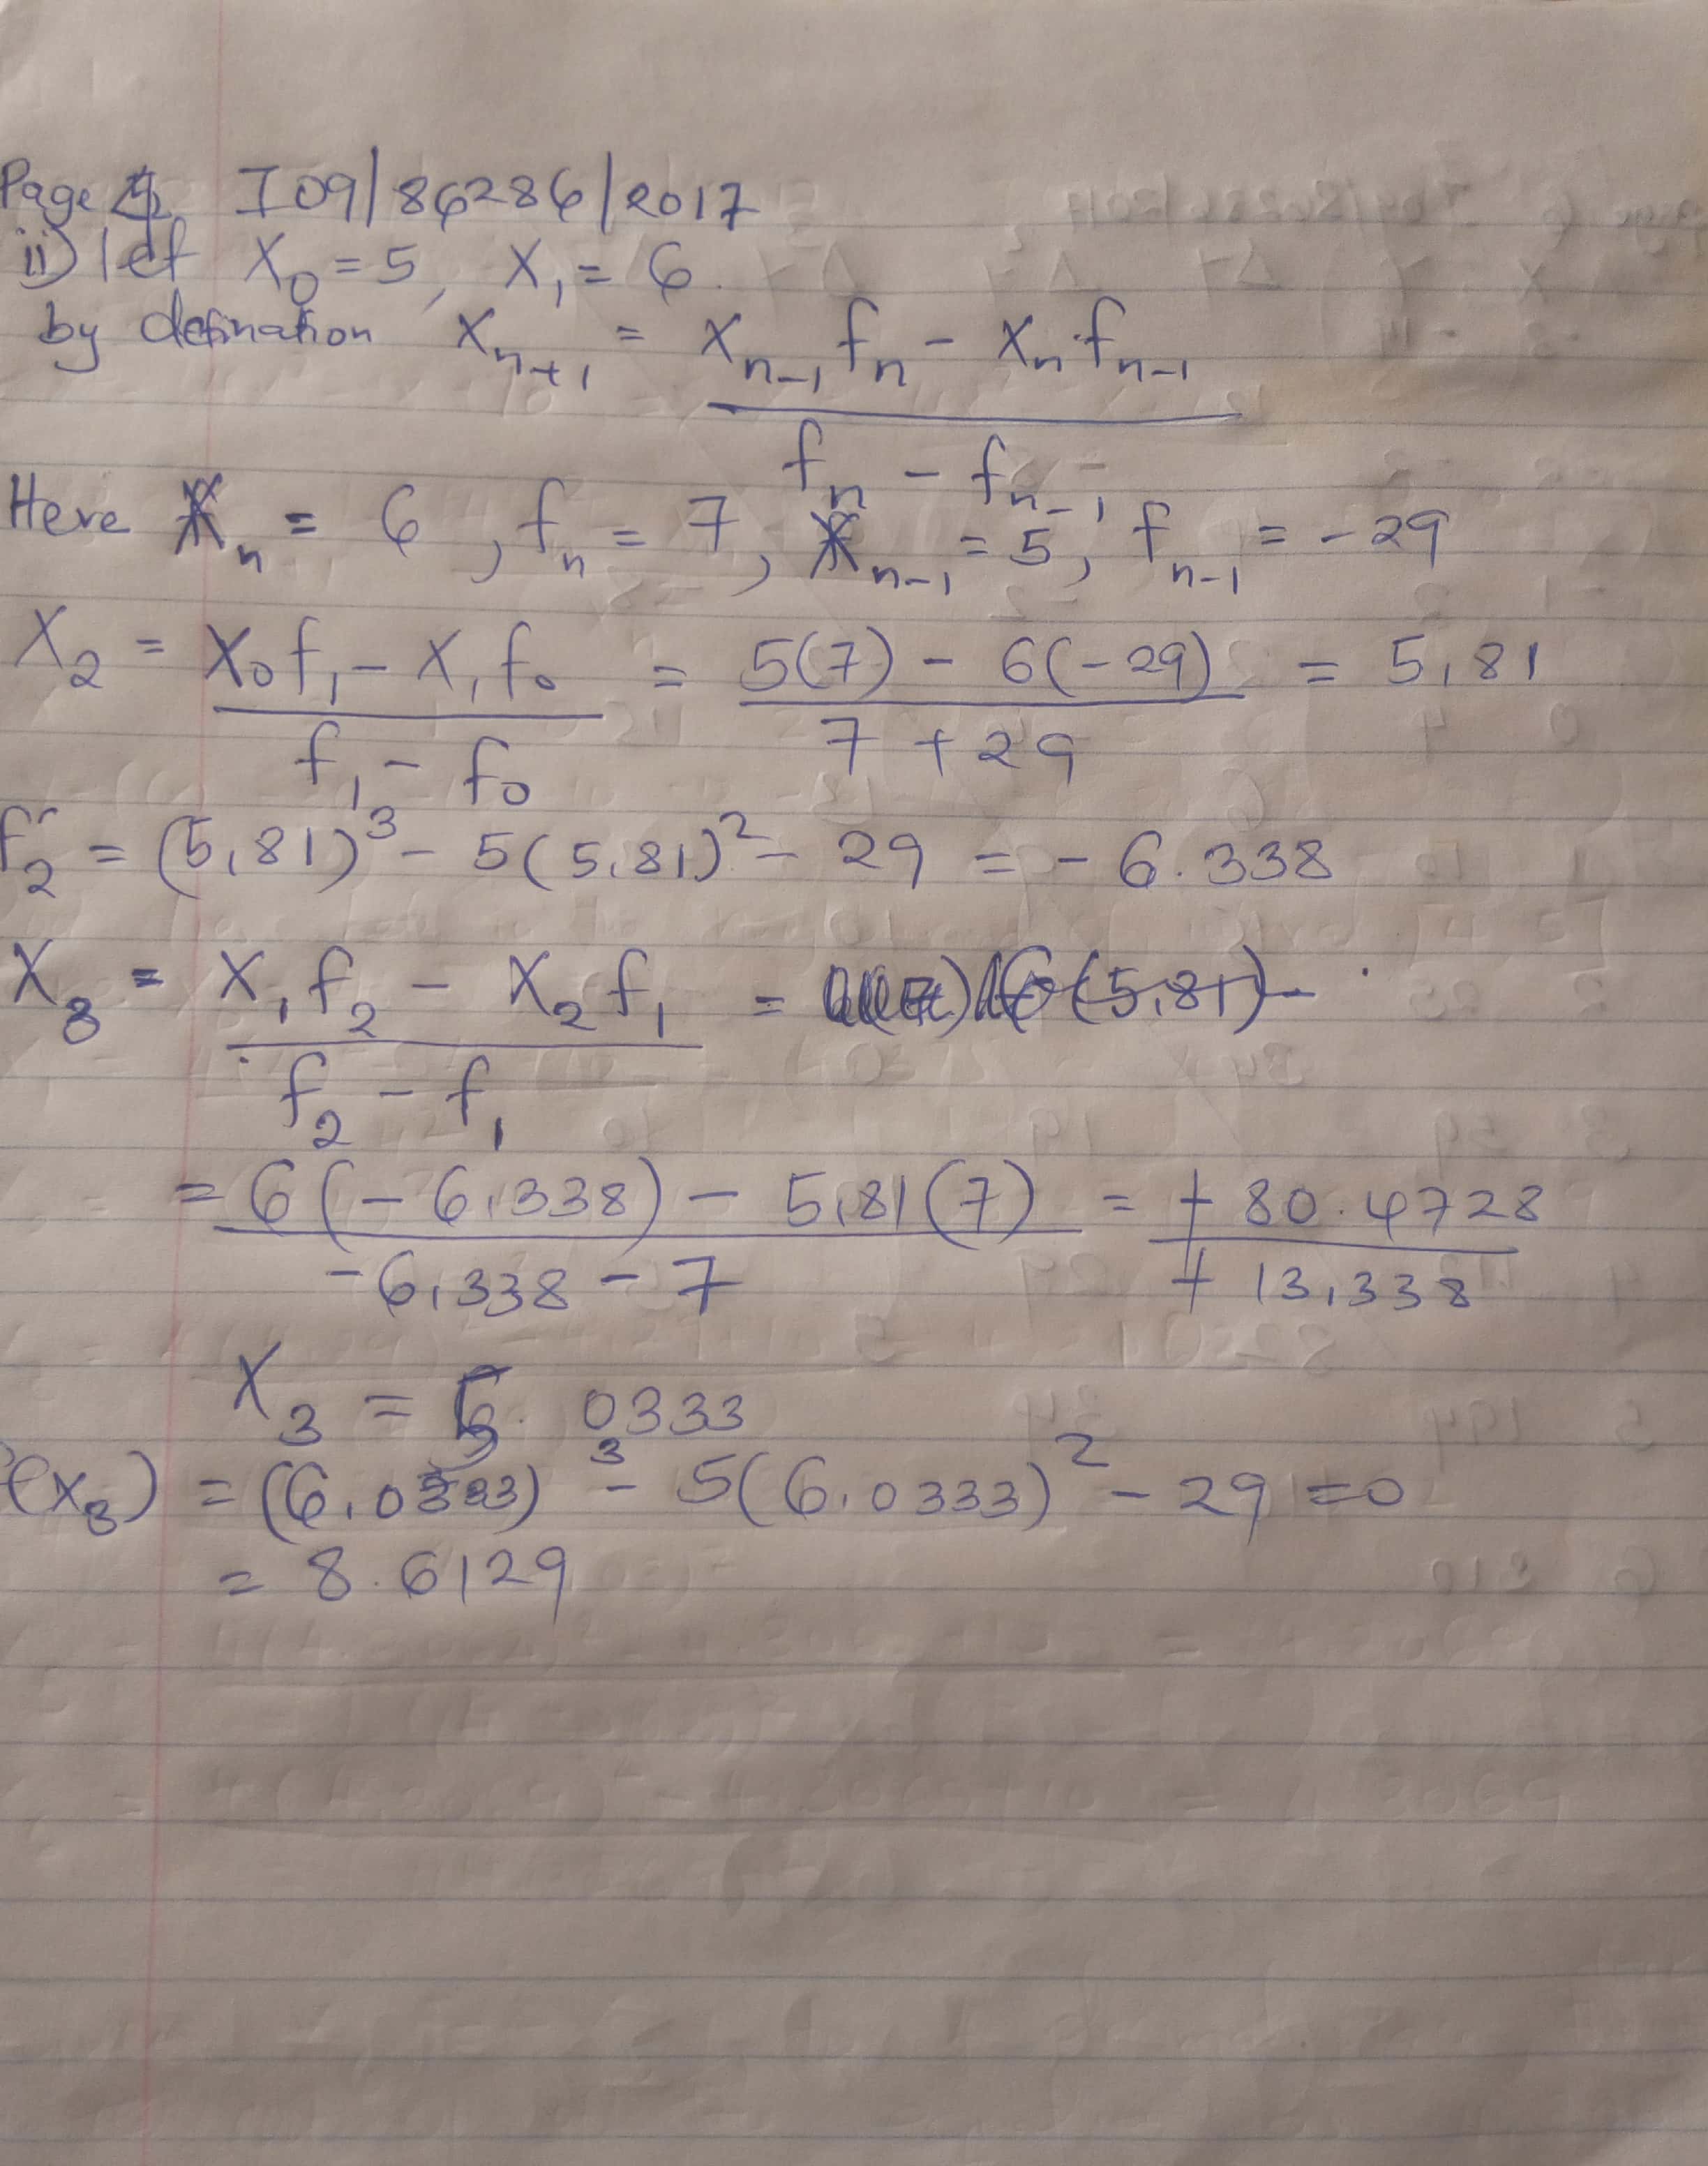 Page 4 I09/86286/2017
ii) let X₀ = 5, X₁ = 6.
by defination Xₙ₊₁ = Xₙ₋₁ fₙ - Xₙ fₙ₋₁
fₙ - fₙ₋₁
Here Xₙ = 6, fₙ = 7, Xₙ₋₁ = 5, fₙ₋₁ = -29
X₂ = X₀f₁ - X₁f₀ = 5(7) - 6(-29) = 5,81
f₁ - f₀ 7 + 29
f₂ = (5,81)³ - 5(5,81)² - 29 = -6.338
X₃ = X₁f₂ - X₂f₁ = 6(5,81) -
f₂ - f₁
= 6(-6,338) - 5,81(7) = + 80.4728
-6,338 - 7 + 13,338
X₃ = 6. 0333
f(x₃) = (6,0333)³ - 5(6,0333)² - 29 = 0
= 8.6129